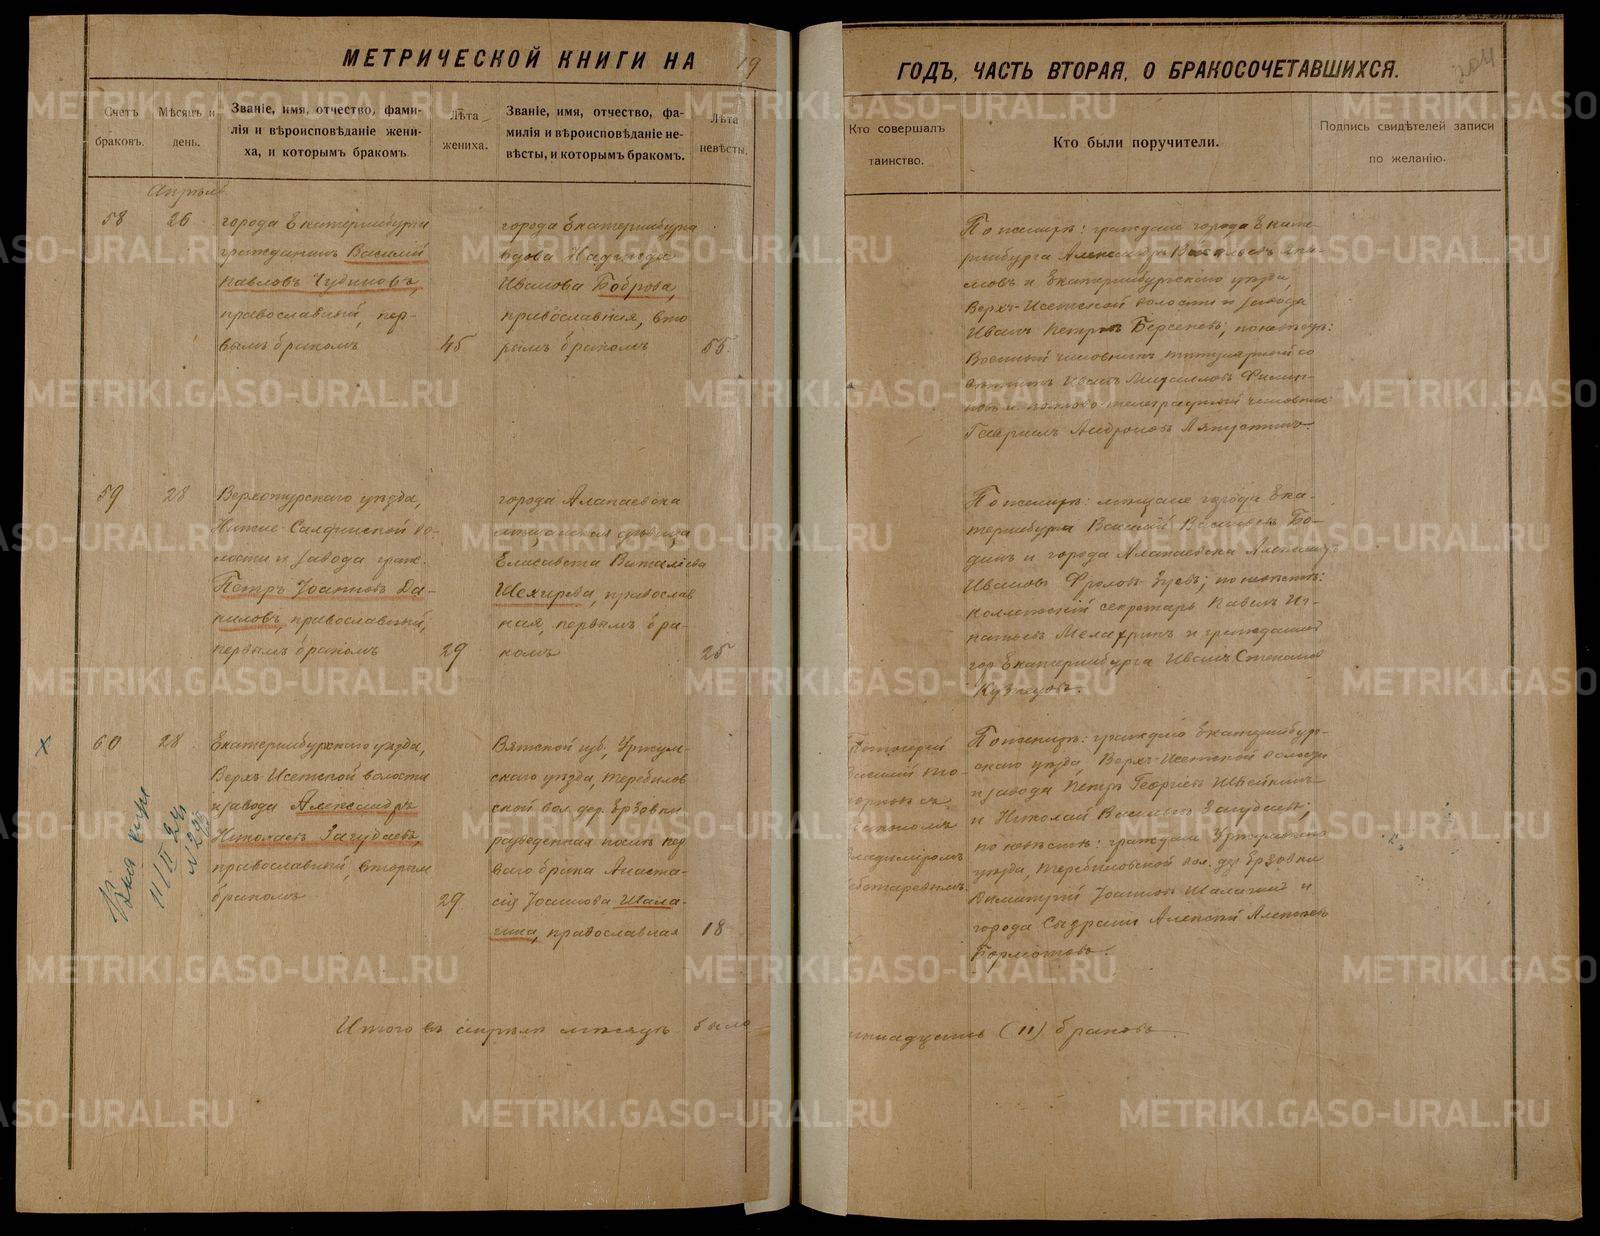 МЕТРИЧЕСКОЙ КНИГИ НА 19
ГОДЪ, ЧАСТЬ ВТОРАЯ, О БРАКОСОЧЕТАВШИХСЯ.
204
Счетъ браковъ.
Мѣсяцъ и день.
Званіе, имя, отчество, фами-
лія и вѣроисповѣданіе жени-
ха, и которымъ бракомъ
Лѣта жениха.
Званіе, имя, отчество, фа-
милія и вѣроисповѣданіе не-
вѣсты, и которымъ бракомъ.
Лѣта невѣсты.
Кто совершалъ
таинство.
Кто были поручители.
Подпись свидѣтелей записи
по желанію.
Апрѣль
58
26
города Екатеринбурга
гражданинъ Василій
Павловъ Чудиновъ,
православный, пер-
вымъ бракомъ
45
города Екатеринбурга
вдова Надежда
Иванова Боброва,
православная, вто
рымъ бракомъ
55.
По женихѣ: граждане города Екате-
ринбурга Александръ
и Екатеринбургскаго уѣзда,
Верхъ-Исетской волости и завода
Иванъ Петровъ Берсеневъ; по невѣстѣ:
Военный чиновникъ титулярный со
вѣтникъ Иванъ Михаиловъ Филип-
повъ и почтово-телеграфный чиновникъ
Гавріилъ
59
28
Верхотурскаго уѣзда,
Нижне-Салдинской во-
лости и завода граж.
Петръ Іоанновъ Да-
ниловъ, православный,
первымъ бракомъ
29
города Алапаевска
мѣщанская дѣвица
Елисавета
православ
ная, первымъ бра-
комъ
25
По женихѣ: мѣщане города Ека-
теринбурга Василій Васильевъ Бо-
динъ и города Алапаевска Александръ
Ивановъ по невѣстѣ:
коллежскій секретарь Павелъ Иг-
натьевъ и гражданинъ
гор. Екатеринбурга Иванъ Степановъ
Кузнецовъ.
х
60
28
Екатеринбургскаго уѣзда,
Верхъ-Исетской волости
и завода Александръ
Николаевъ Загудаевъ,
православный, вторымъ
бракомъ
29
Вятской губ., Уржум-
скаго уѣзда, Теребилов
ской вол. дер. Ерзовки
разведенная послѣ пер
ваго брака Анаста-
сія Іоаннова Шала-
гина, православная
18
Протоіерей
діакономъ
Владиміромъ
По женихѣ: граждане Екатеринбург-
скаго уѣзда, Верхъ-Исетской волости
и завода Петръ Георгіевъ
и Николай Васильевъ Загудаевъ;
по невѣстѣ: граждане Уржумскаго
уѣзда, Теребиловской вол. дер. Ерзовки
Димитрій Іоанновъ Шалагинъ и
города Сызрани Алексѣй Алексѣевъ
Бормотовъ.
11/II 24
Итого въ апрѣлѣ мѣсяцѣ было
одиннадцать (11) браковъ
METRIKI.GASO-URAL.RU